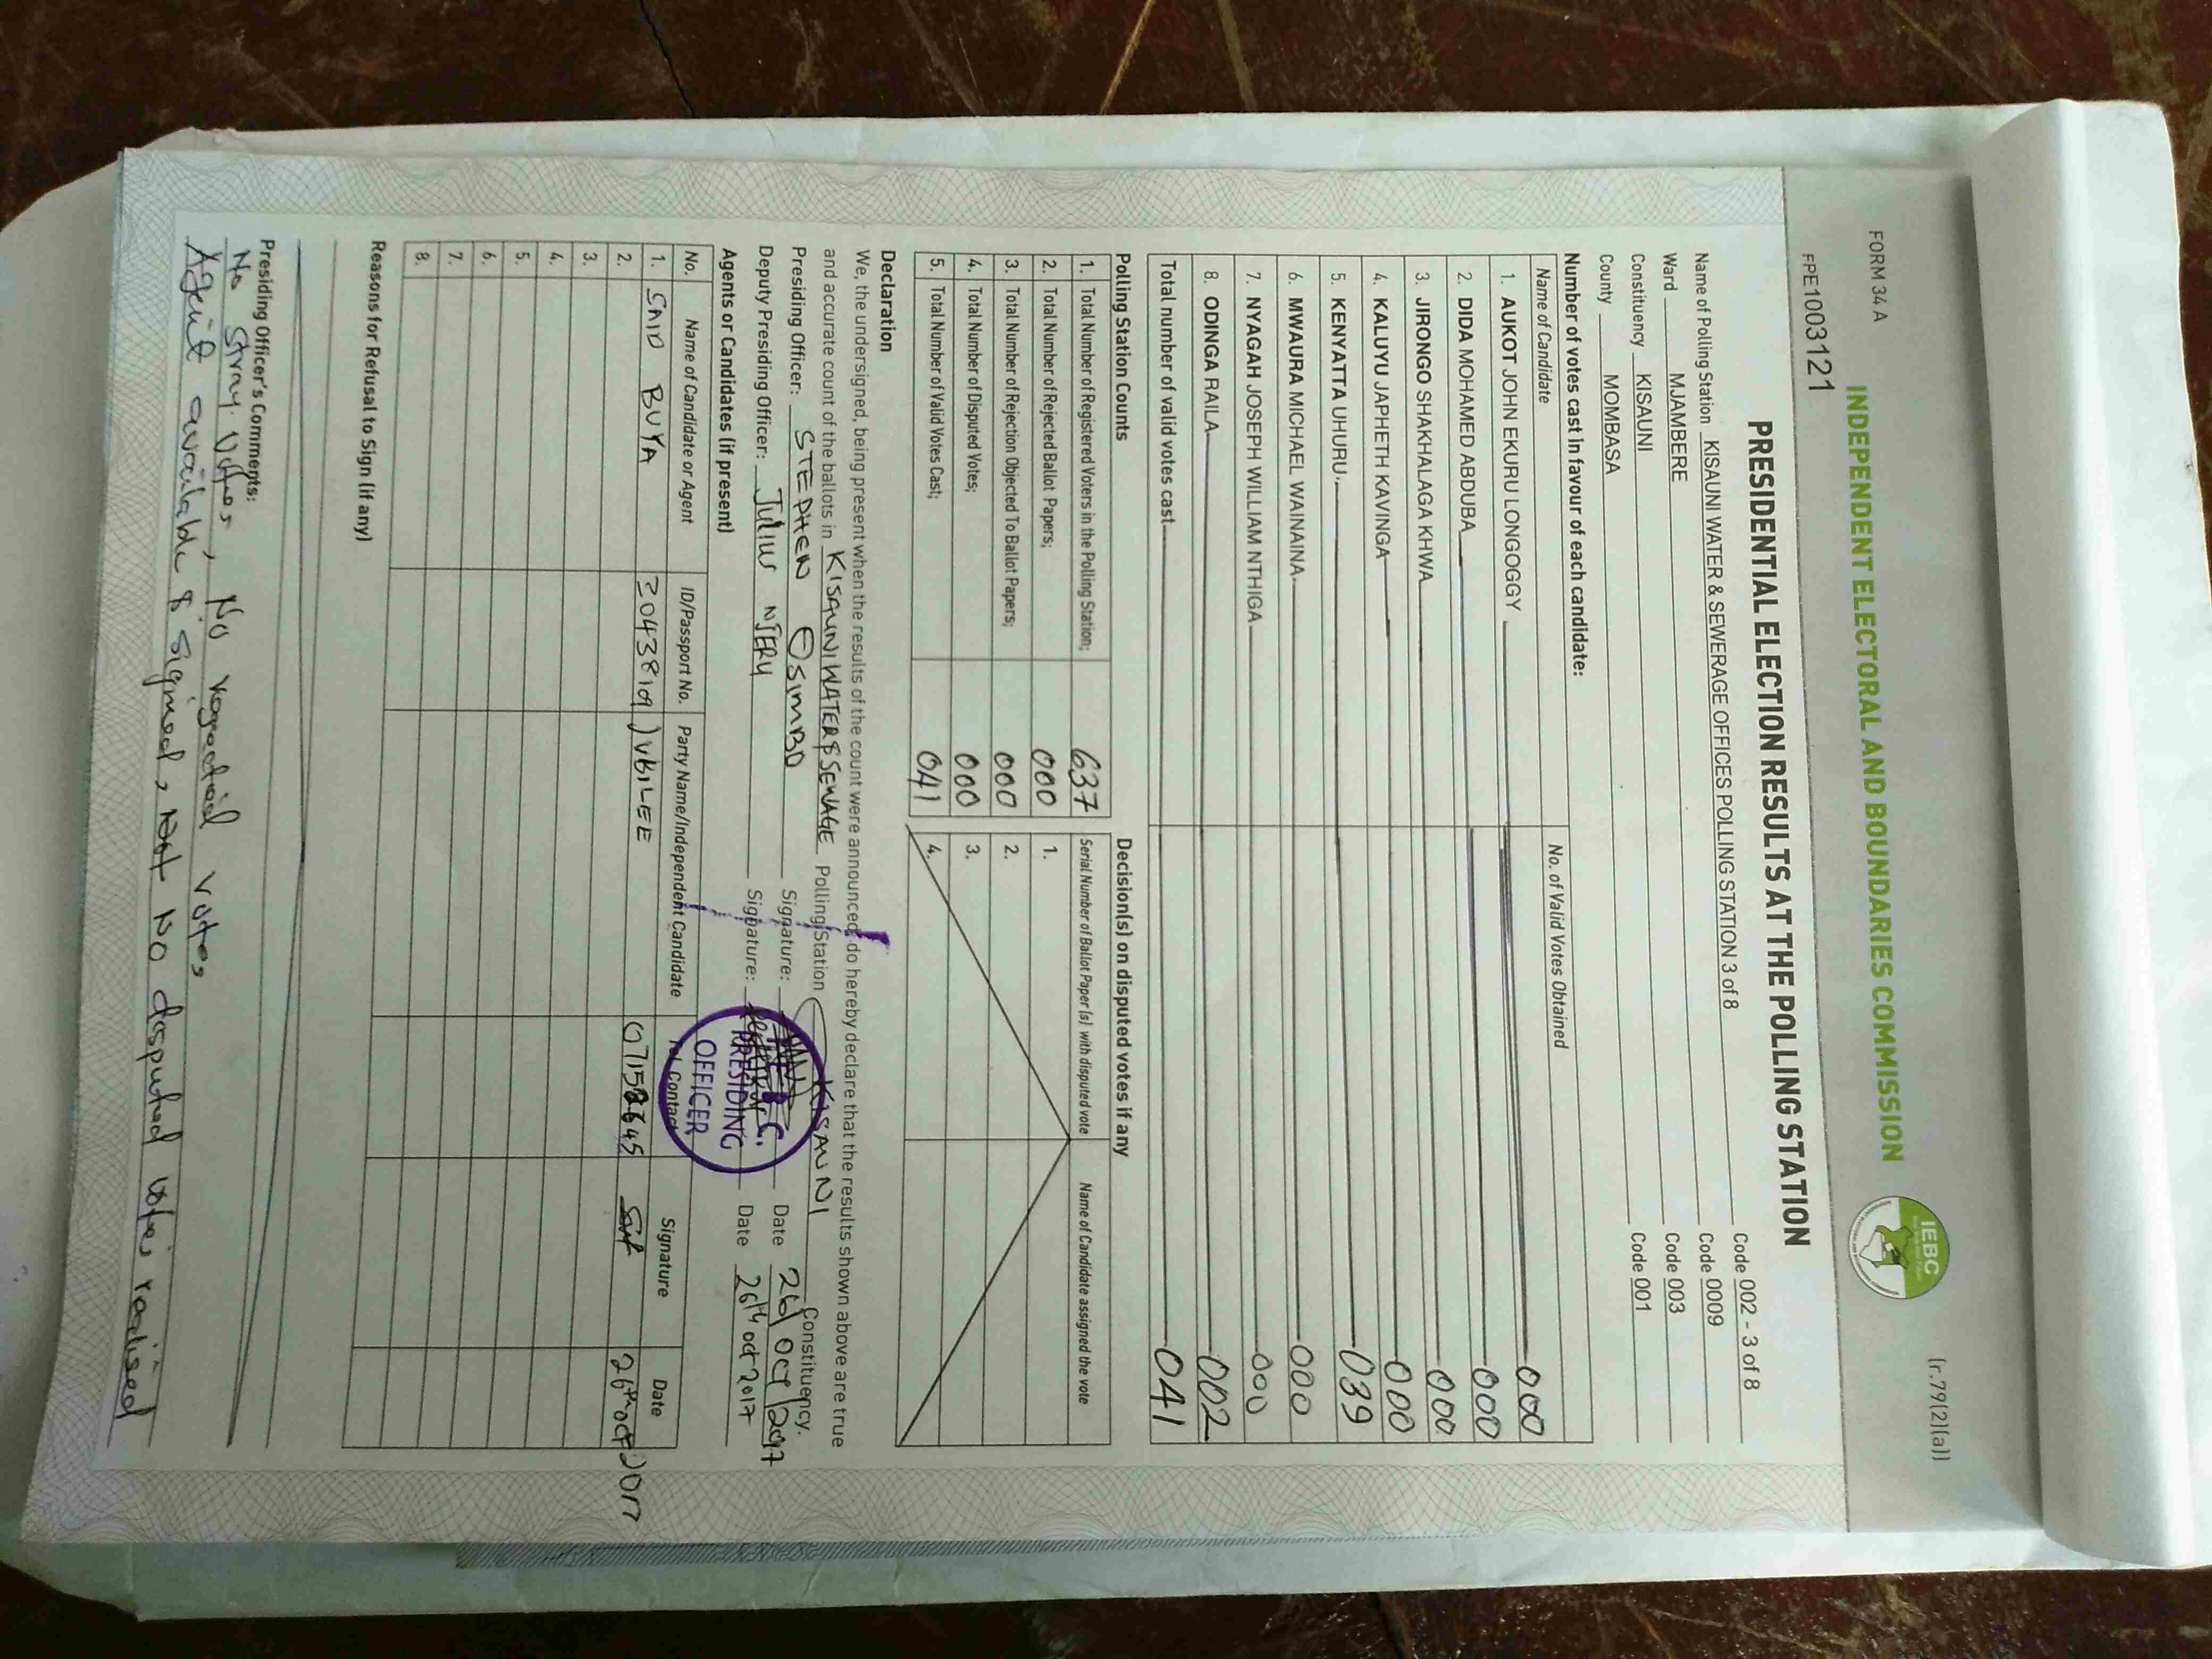 FORM 34 A
(r.79(2)(a))
INDEPENDENT ELECTORAL AND BOUNDARIES COMMISSION
IEBC
FPE1003121
PRESIDENTIAL ELECTION RESULTS AT THE POLLING STATION
Name of Polling Station KISAUNI WATER & SEWERAGE OFFICES POLLING STATION 3 of 8 Code 002 - 3 of 8
Ward MJAMBERE Code 0009
Constituency KISAUNI Code 003
County MOMBASA Code 001
Number of votes cast in favour of each candidate:
Name of Candidate No. of Valid Votes Obtained
1. AUKOT JOHN EKURU LONGOGGY 000
2. DIDA MOHAMED ABDUBA 000
3. JIRONGO SHAKHALAGA KHWA 000
4. KALUYU JAPHETH KAVINGA 000
5. KENYATTA UHURU 039
6. MWAURA MICHAEL WAINAINA 000
7. NYAGAH JOSEPH WILLIAM NTHIGA 000
8. ODINGA RAILA 002
Total number of valid votes cast 041
Polling Station Counts
1. Total Number of Registered Voters in the Polling Station; 637
2. Total Number of Rejected Ballot Papers; 000
3. Total Number of Rejection Objected To Ballot Papers; 000
4. Total Number of Disputed Votes; 000
5. Total Number of Valid Votes Cast; 041
Decision(s) on disputed votes if any
Serial Number of Ballot Paper (s) with disputed vote Name of Candidate assigned the vote
1.
2.
3.
4.
Declaration
We, the undersigned, being present when the results of the count were announced, do hereby declare that the results shown above are true
and accurate count of the ballots in KISAUNI WATER & SEWAGE Polling Station KISAUNI Constituency.
Presiding Officer: STEPHEN OSIMBO Signature: Date 26/OCT/2017
Deputy Presiding Officer: JULIUS NJERU Signature: Date 26th oct 2017
PRESIDING
OFFICER
Agents or Candidates (if present)
No. Name of Candidate or Agent ID/Passport No. Party Name/Independent Candidate Tel. Contact Signature Date
1. SAID BUYA 30438191 JUBILEE 26th oct 2017
2.
3.
4.
5.
6.
7.
8.
Reasons for Refusal to Sign (if any)
Presiding Officer's Comments:
No Stray Votes, No rejected votes
Agent available & signed, No disputed votes raised